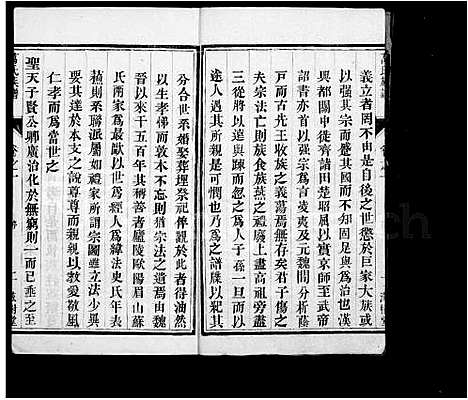 義立者罔不由是自後之世懲於巨家大族或
以强其宗而蹙其國而不知固足與為治也漢
興都關中徙齊諸田楚昭屈以實京師至武帝
詔書亦首以强宗為言凌夷及元魏間分析蔭
戶而古先王收族之義蕩焉無存矣君子傷之
夫宗法亡則族食族燕之禮廢上盡高祖旁盡
三從將以遠與疎而忽之為人子孫一旦而以
途人遇其所親是可憫也乃為之譜牒以紀其
分合世系婚娶葬埋祭祀俾觀於此者得油然
以生孝悌而敦本不忘則猶宗法之遺焉由魏
晉以來千五百年其稱善者廬陵歐陽眉山蘇
氏兩家為最歐以世為經人為緯法史氏年表
蘇則系聯派屬如禮家所謂宗圖雖立法少異
要其達於本支之說尊尊而親親以教敬勸風
仁孝而為當世之
聖天子賢公卿廣治化於無窮則一而已垂之至